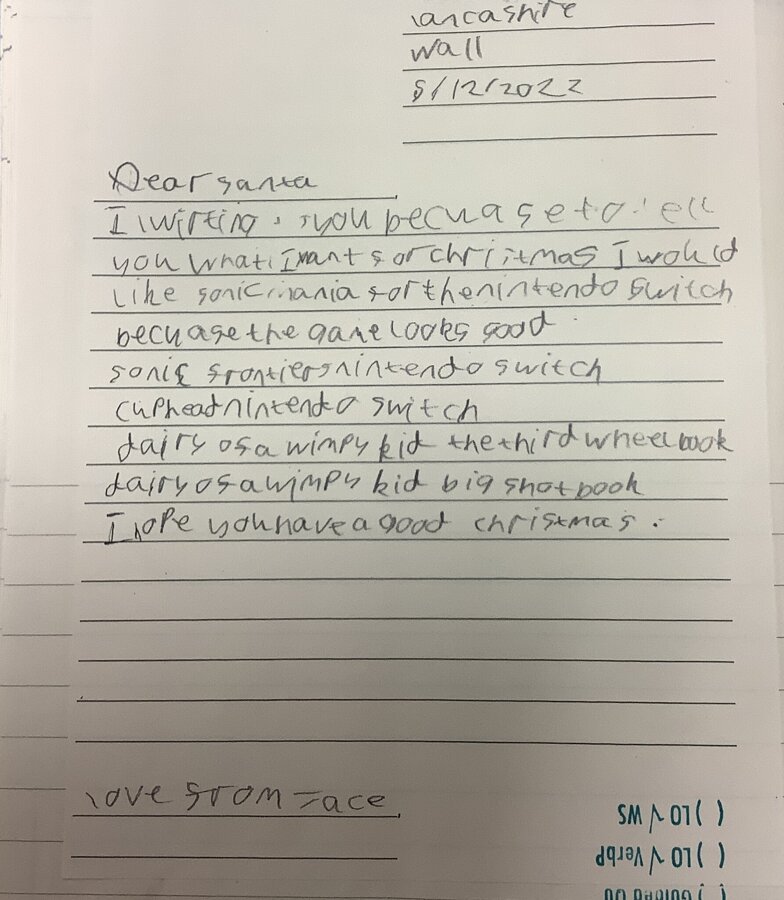 lancashire
wall
5/12/2022
Dear santa
I wirting you becuase to tell
you what i want for christmas I would
like sonic mania for the nintendo switch
becuase the game looks good
sonic frontiers nintendo switch
cuphead nintendo switch
dairy of a wimpy kid the third wheel book
dairy of a wimpy kid big shot book
I ope you have a good christmas.
love from
( ) LO ✓ WS
( ) LO ✓ Verbp